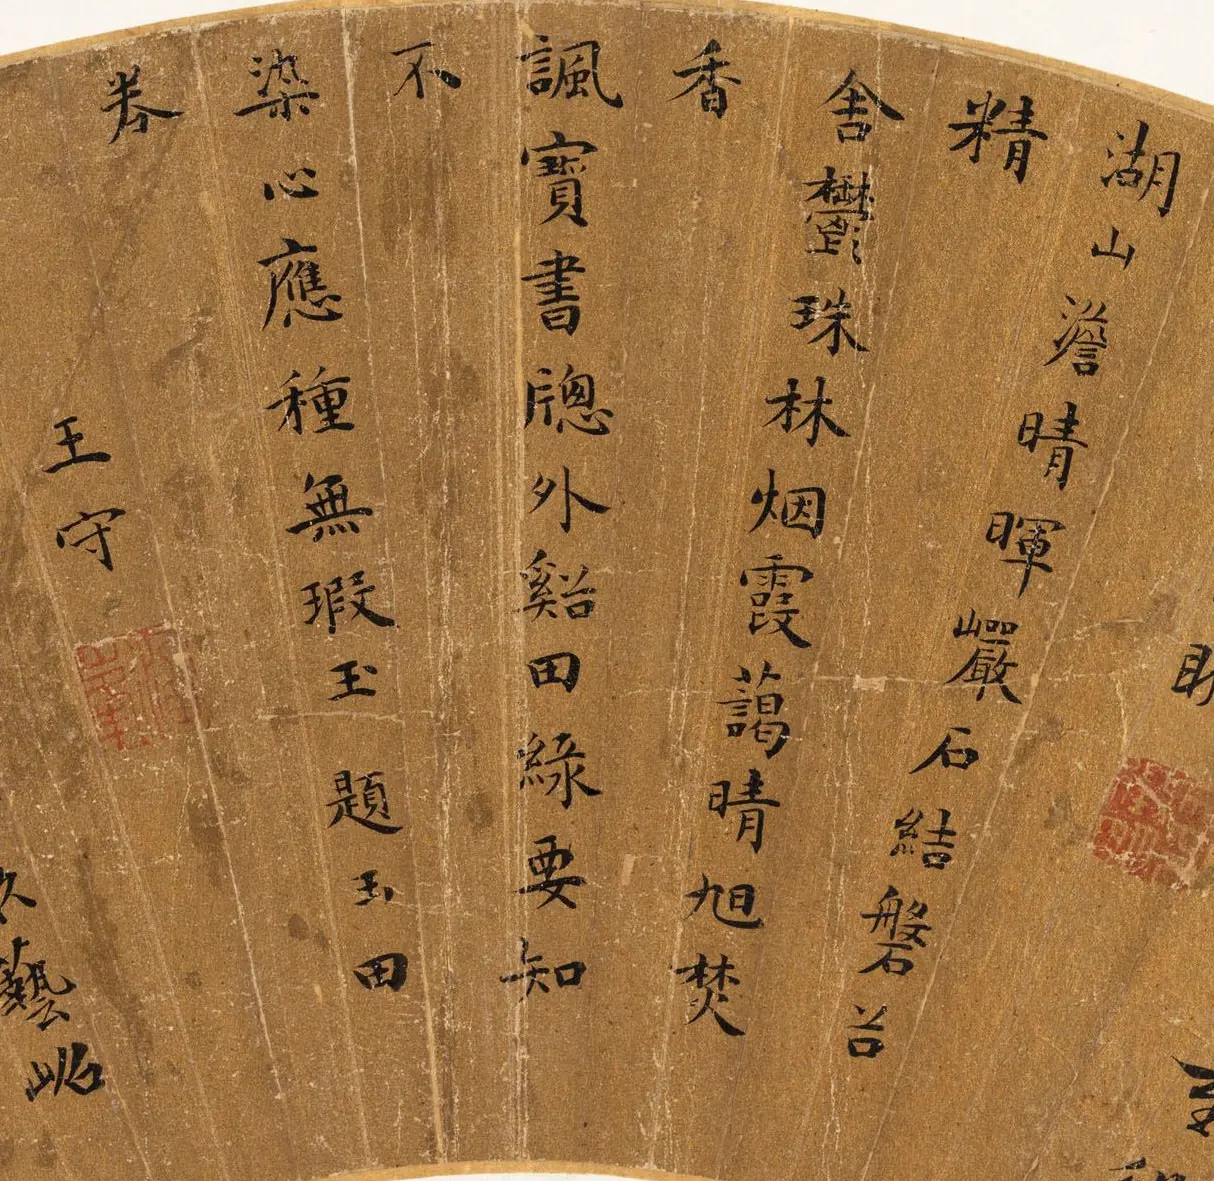 湖山澹晴暉巖石結磐谷
精
舍鬱珠林烟霞藹晴旭焚
香
諷寶書牕外谿田綠要知
不
染心應種無瑕玉 題玉田
卷
王守